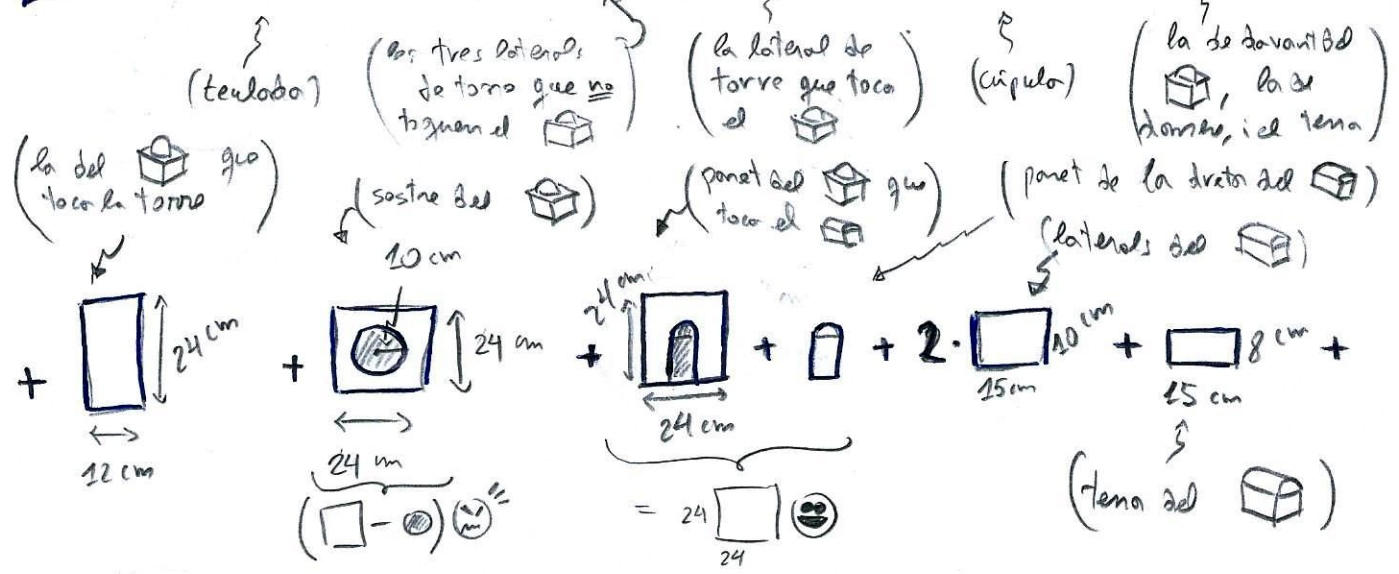 (teulada)
(les tres laterals
de torre que no
toquen el )
(la lateral de
torre que toca
el )
(cúpula)
(la de davant del
, la de
darrere, i el terra)
(la del que
toca la torre)
(sostre del )
(paret del que
toca el )
(paret de la dreta del )
(laterals del )
10 cm
+ 24 cm
12 cm
+ 24 cm
24 cm
( - )
+ 24 cm
24 cm
= 24
24
+
+ 2. 10 cm
15 cm
+ 8 cm +
15 cm
(terra del )